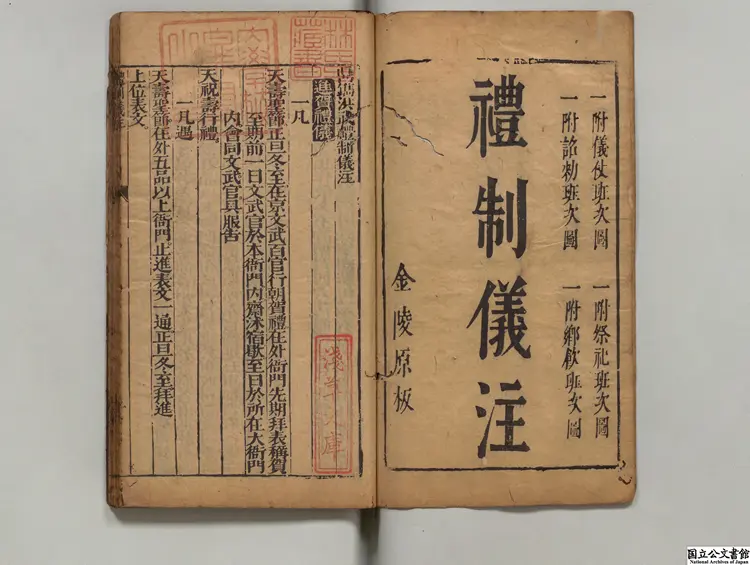 一附儀仗班次圖
一附祭祀班次圖
一附詔勑班次圖
一附鄉飲班次圖
禮制儀注
金陵原板
洪武禮制儀注
進賀禮儀
一凡
天壽聖節正旦冬至在京文武百官行朝賀禮在外衙門先期拜表稱賀
至期前一日文武官於本衙門內齋沐宿歇至日於所在大衙門
內會同文武官具服告
天祝壽行禮
一凡遇
天壽聖節在外五品以上衙門止進表文一通正旦冬至拜進
上位表文
林氏藏書
淺草文庫
国立公文書館
National Archives of Japan